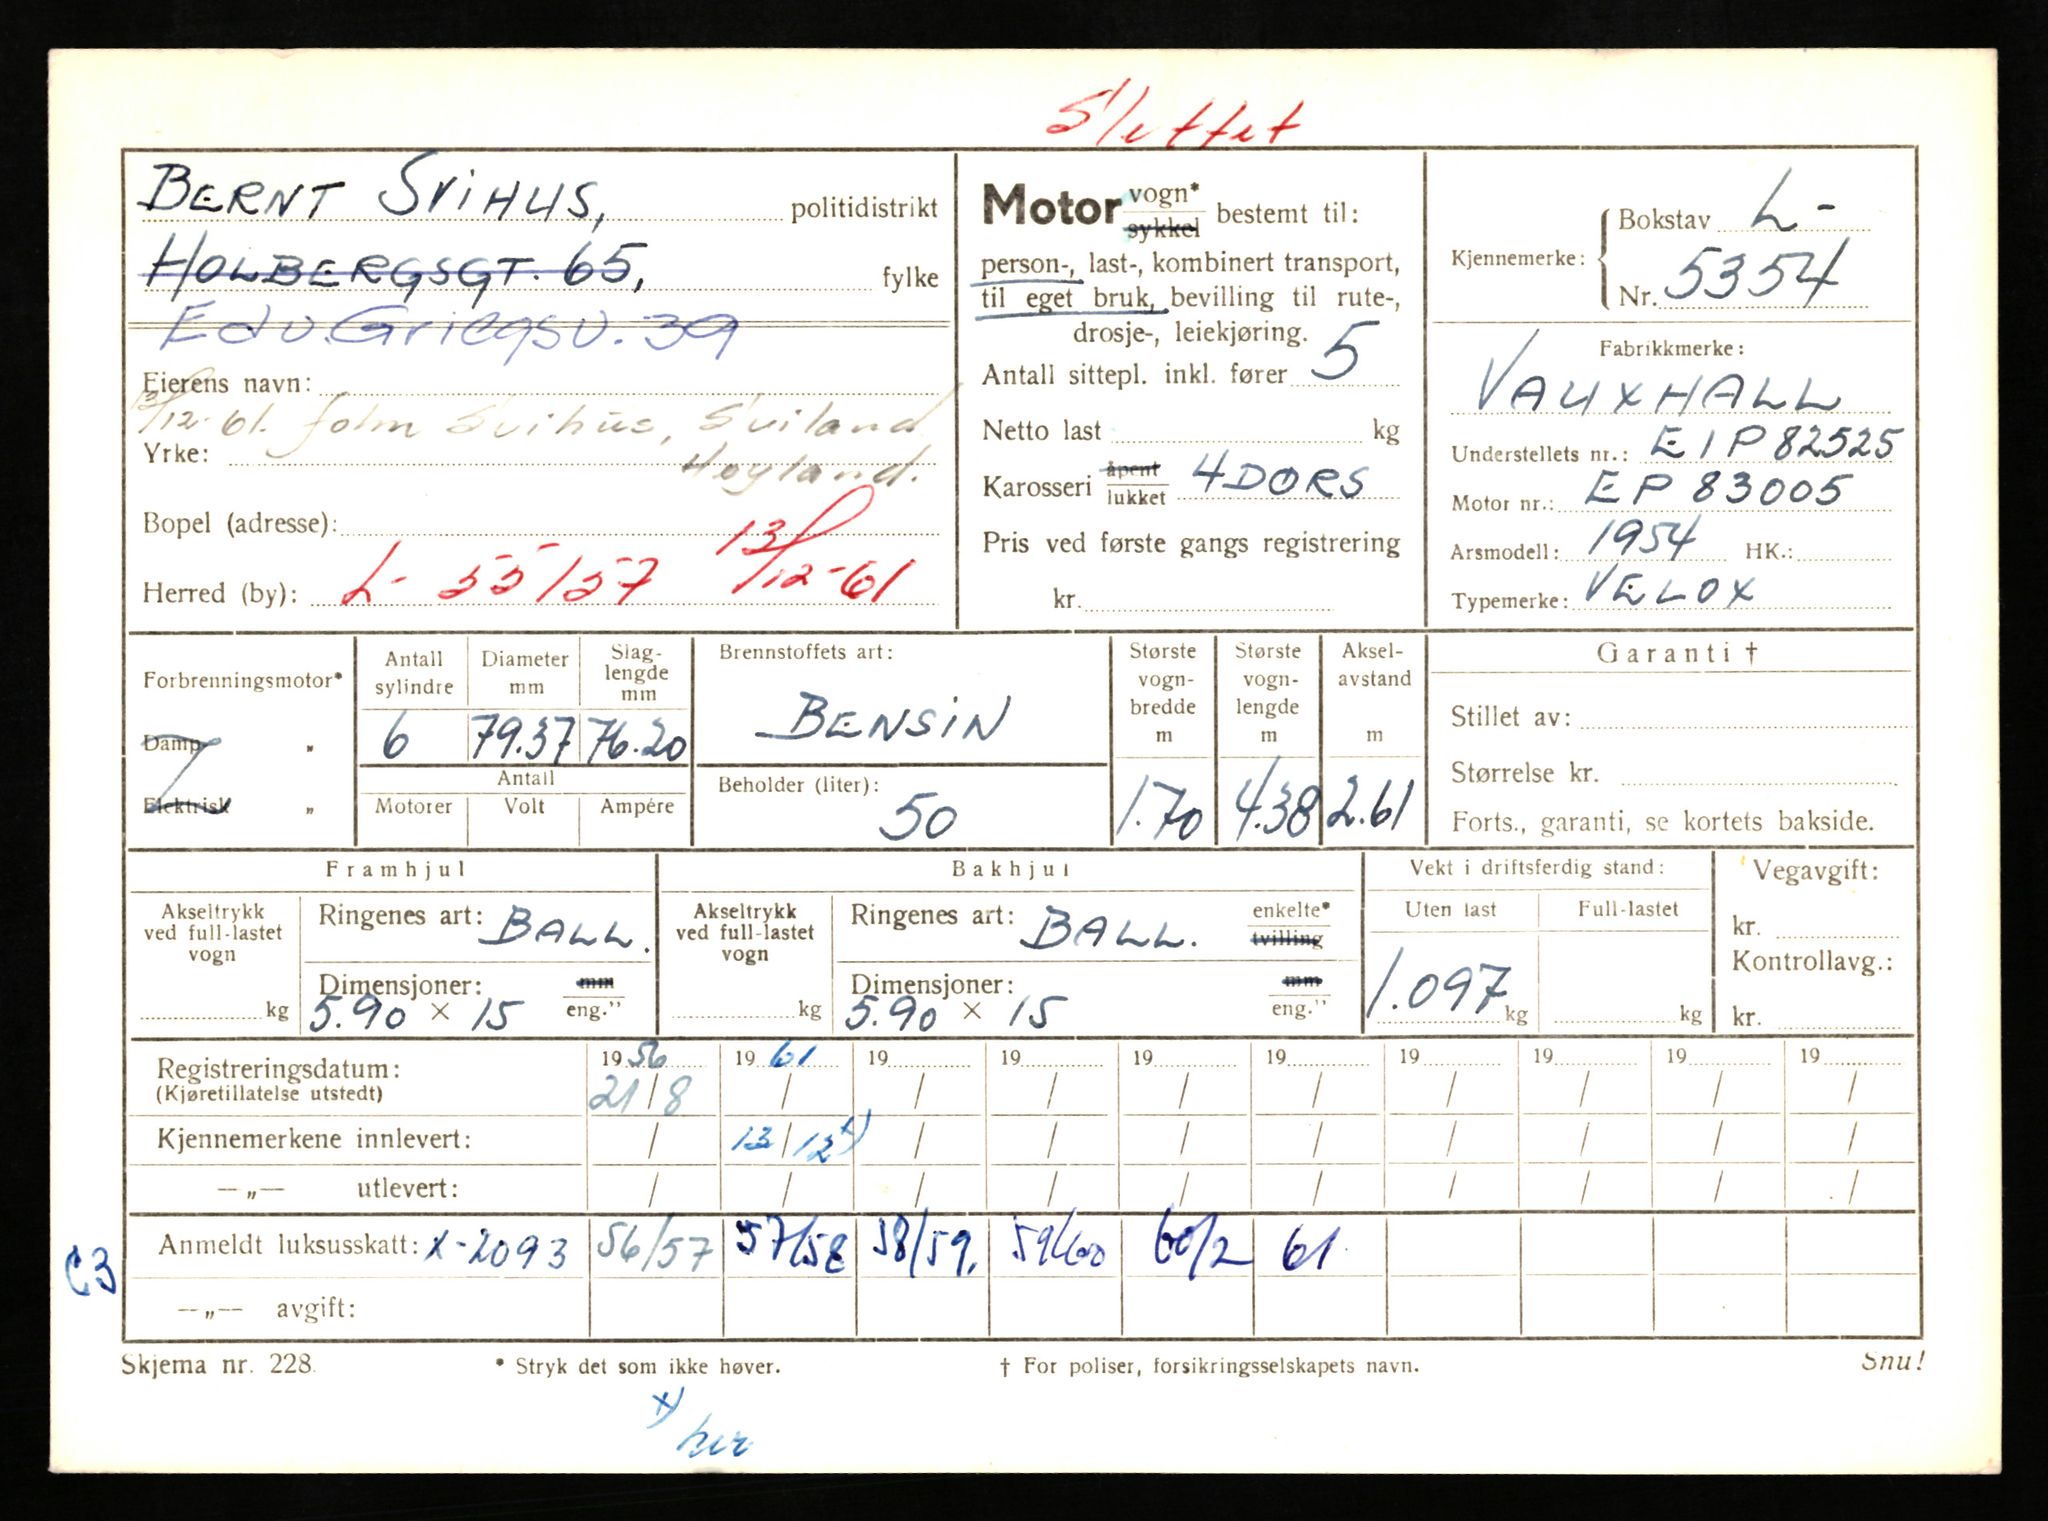 Slettet
BERNT SVIHUS, politidistrikt
HOLBERGSGT. 65, fylke
Edv. Griegsv. 39
Eierens navn:
13/12-61. Svihus, Sviland
Yrke: Høyland.
Bopel (adresse):
Herred (by): L- 55157 13/12-61
Motor vogn* sykkel bestemt til:
person-, last-, kombinert transport,
til eget bruk, bevilling til rute-,
drosje-, leiekjøring.
Antall sittepl. inkl. fører 5
Netto last kg
Karosseri åpent lukket 4DØRS
Pris ved første gangs registrering
kr.
Kjennemerke: Bokstav L-
Nr. 5354
Fabrikkmerke:
VAUXHALL
Understellets nr.: EIP82525
Motor nr.: EP 83005
Arsmodell: 1954 HK.:
Typemerke: VELOX
Forbrenningsmotor*
Damp- „
Elektrisk „
Antall sylindre Diameter mm Slag-lengde mm
6 79.37 76.20
Antall
Motorer Volt Ampére
Brennstoffets art:
BENSIN
Beholder (liter):
50
Største vogn-bredde m Største vogn-lengde m Aksel-avstand m
1.70 4.38 2.61
Garanti †
Stillet av:
Størrelse kr.
Forts., garanti, se kortets bakside.
Framhjul
Akseltrykk ved full-lastet vogn
kg
Ringenes art: BALL.
Dimensjoner: mm
5.90 × 15 eng."
Bakhjul
Akseltrykk ved full-lastet vogn
kg
Ringenes art: BALL. enkelte* tvilling
Dimensjoner: mm
5.90 × 15 eng."
Vekt i driftsferdig stand:
Uten last Full-lastet
1.097 kg kg
Vegavgift:
kr.
Kontrollavg.:
kr.
Registreringsdatum: 1956 1961 19 19 19 19 19 19 19 19
(Kjøretillatelse utstedt) 21/8 / / / / / / / / /
Kjennemerkene innlevert: / 13/12 x) / / / / / / / /
—„— utlevert: / / / / / / / / / /
C3 Anmeldt luksusskatt: X-2093 56/57 57/58 58/59. 59/60 60/2 61
—„— avgift:
Skjema nr. 228. * Stryk det som ikke høver. † For poliser, forsikringsselskapets navn. Snu!
x)
her